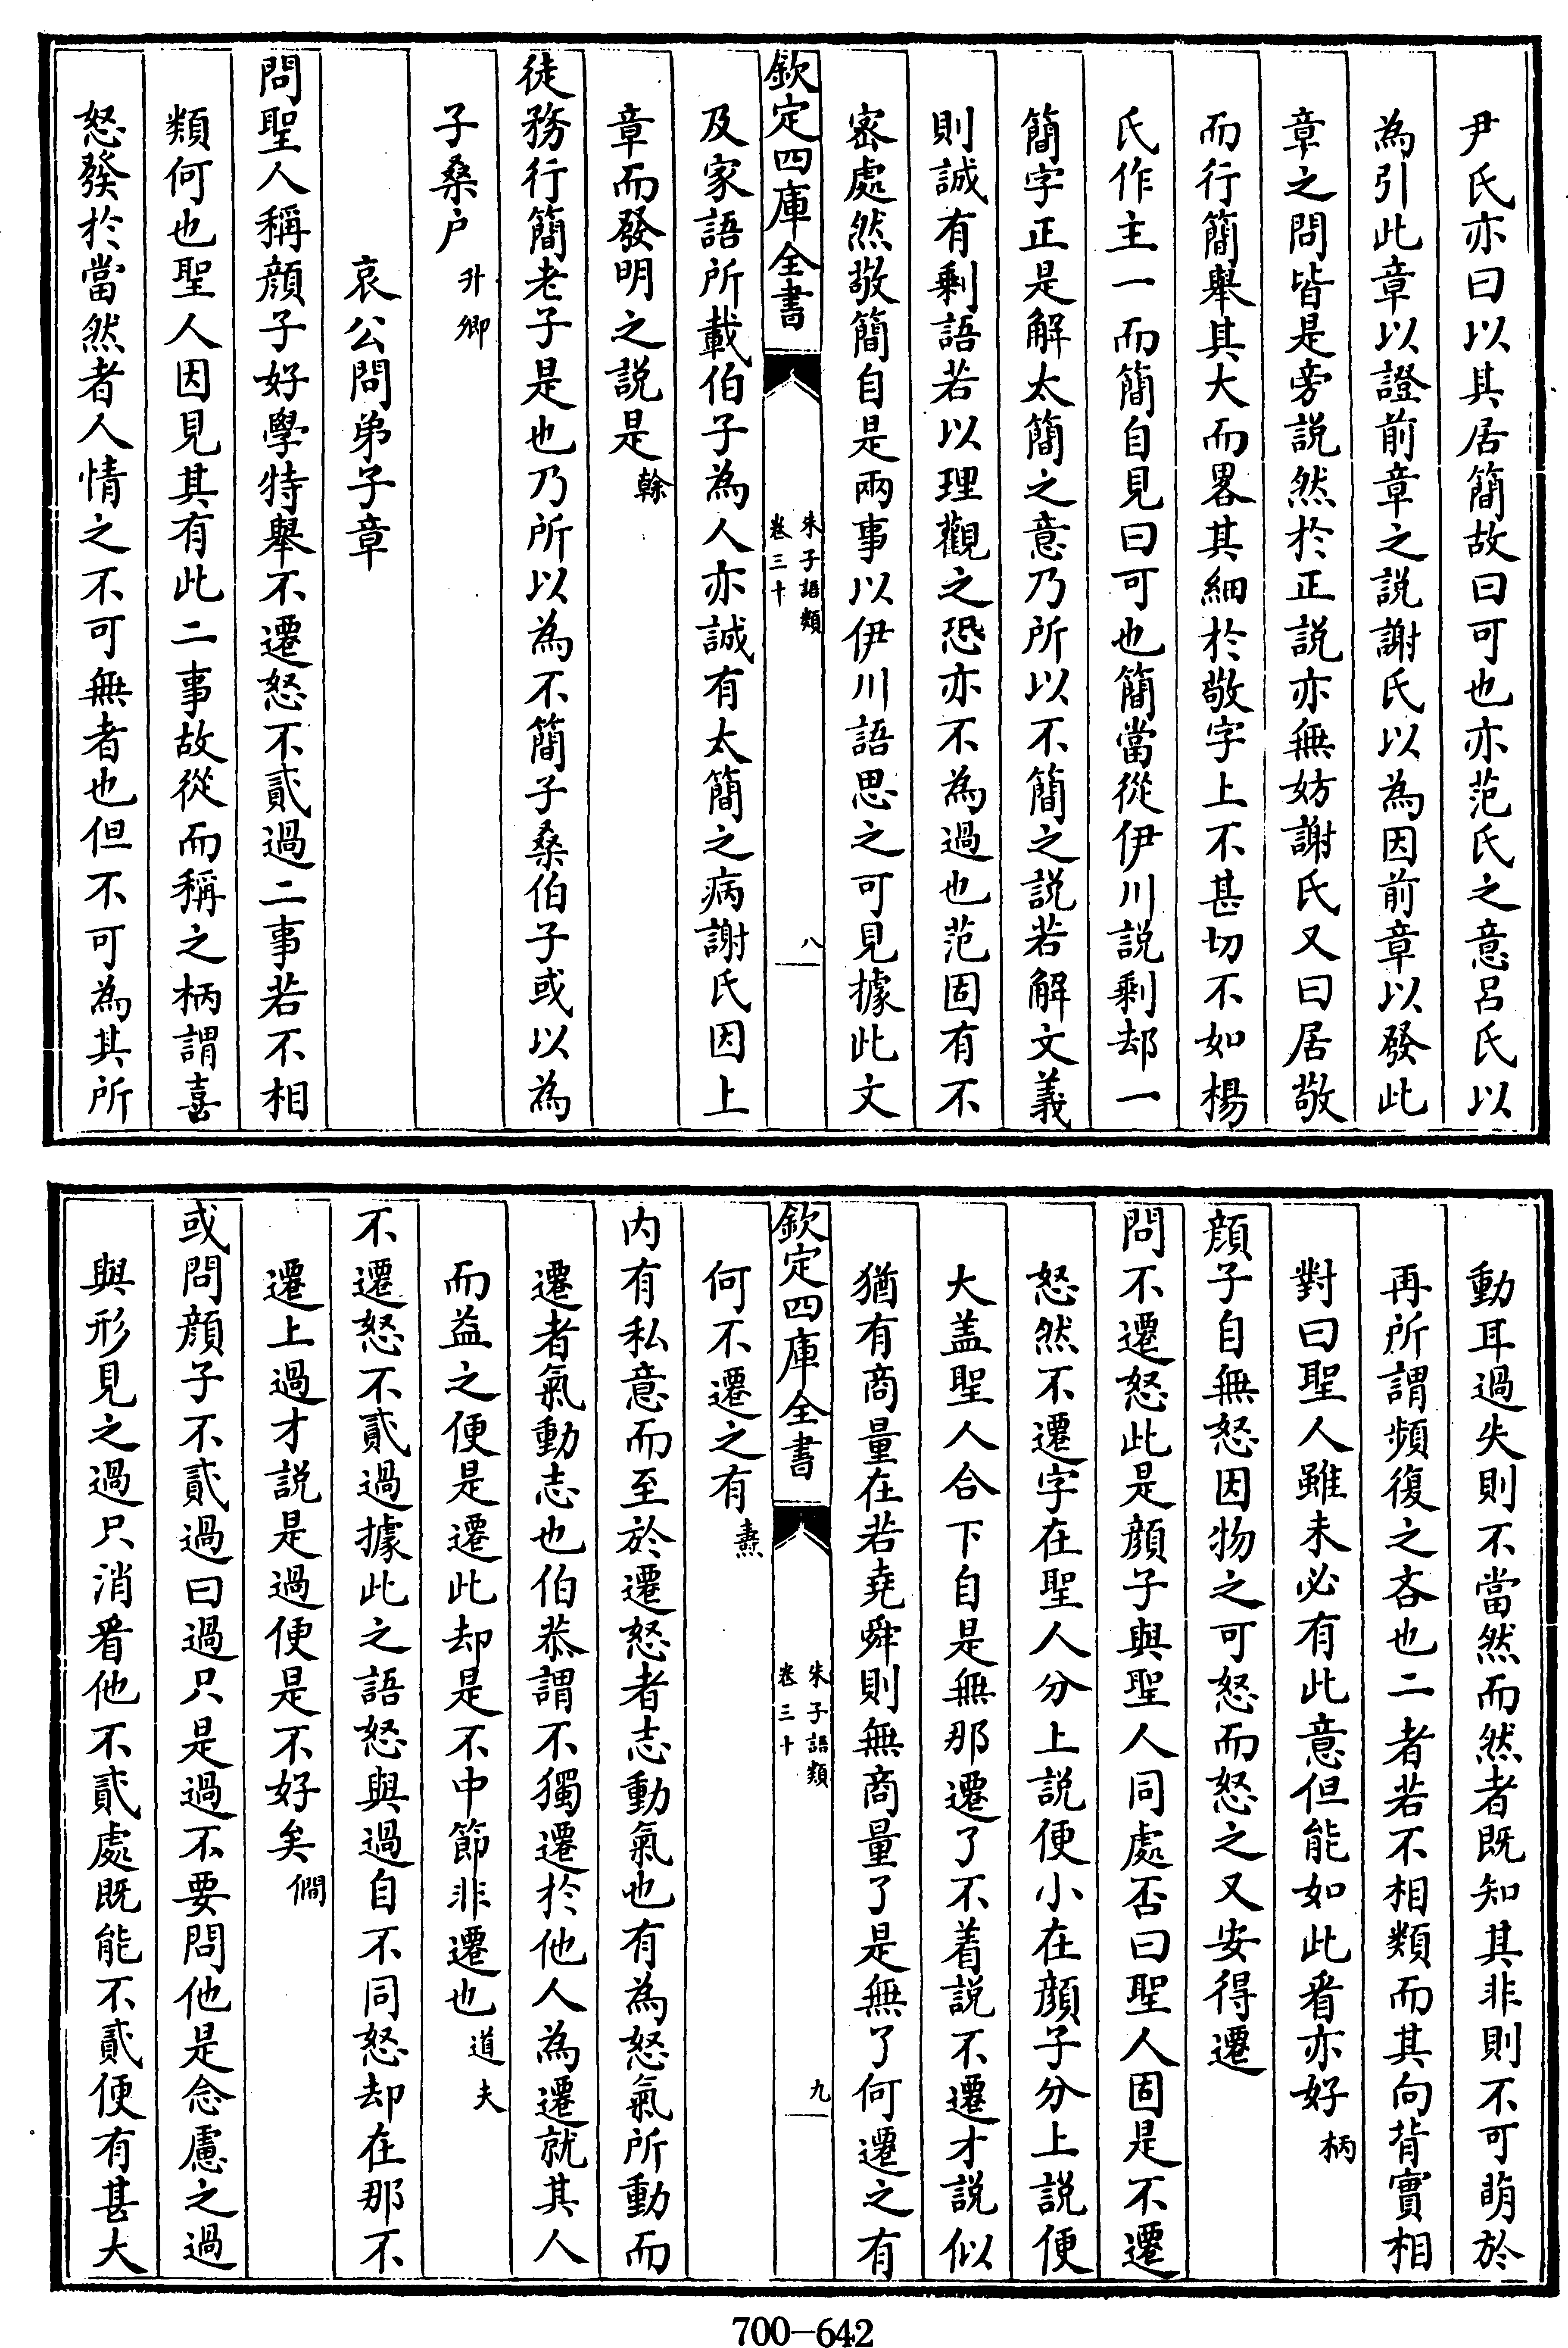 尹氏亦曰以其居簡故曰可也亦范氏之意吕氏以
為引此章以證前章之説謝氏以為因前章以發此
章之問皆是旁説然於正説亦無妨謝氏又曰居敬
而行簡舉其大而畧其細於敬字上不甚切不如楊
氏作主一而簡自見曰可也簡當從伊川説剩却一
簡字正是解太簡之意乃所以不簡之説若解文義
則誠有剩語若以理觀之恐亦不為過也范固有不
密處然敬簡自是兩事以伊川語思之可見據此文
欽定四庫全書
朱子語類
卷三十
八
及家語所載伯子為人亦誠有太簡之病謝氏因上
章而發明之説是榦
徒務行簡老子是也乃所以為不簡子桑伯子或以為
子桑户升卿
哀公問弟子章
問聖人稱顔子好學特舉不遷怒不貳過二事若不相
類何也聖人因見其有此二事故從而稱之柄謂喜
怒發於當然者人情之不可無者也但不可為其所
動耳過失則不當然而然者既知其非則不可萌於
再所謂頻復之吝也二者若不相類而其向背實相
對曰聖人雖未必有此意但能如此看亦好柄
顔子自無怒因物之可怒而怒之又安得遷
問不遷怒此是顔子與聖人同處否曰聖人固是不遷
怒然不遷字在聖人分上説便小在顔子分上説便
大盖聖人合下自是無那遷了不着説不遷才説似
猶有商量在若堯舜則無商量了是無了何遷之有
欽定四庫全書
朱子語類
卷三十
九
何不遷之有燾
内有私意而至於遷怒者志動氣也有為怒氣所動而
遷者氣動志也伯恭謂不獨遷於他人為遷就其人
而益之便是遷此却是不中節非遷也道夫
不遷怒不貳過據此之語怒與過自不同怒却在那不
遷上過才説是過便是不好矣僩
或問顔子不貳過曰過只是過不要問他是念慮之過
與形見之過只消看他不貳處既能不貳便有甚大
700-642